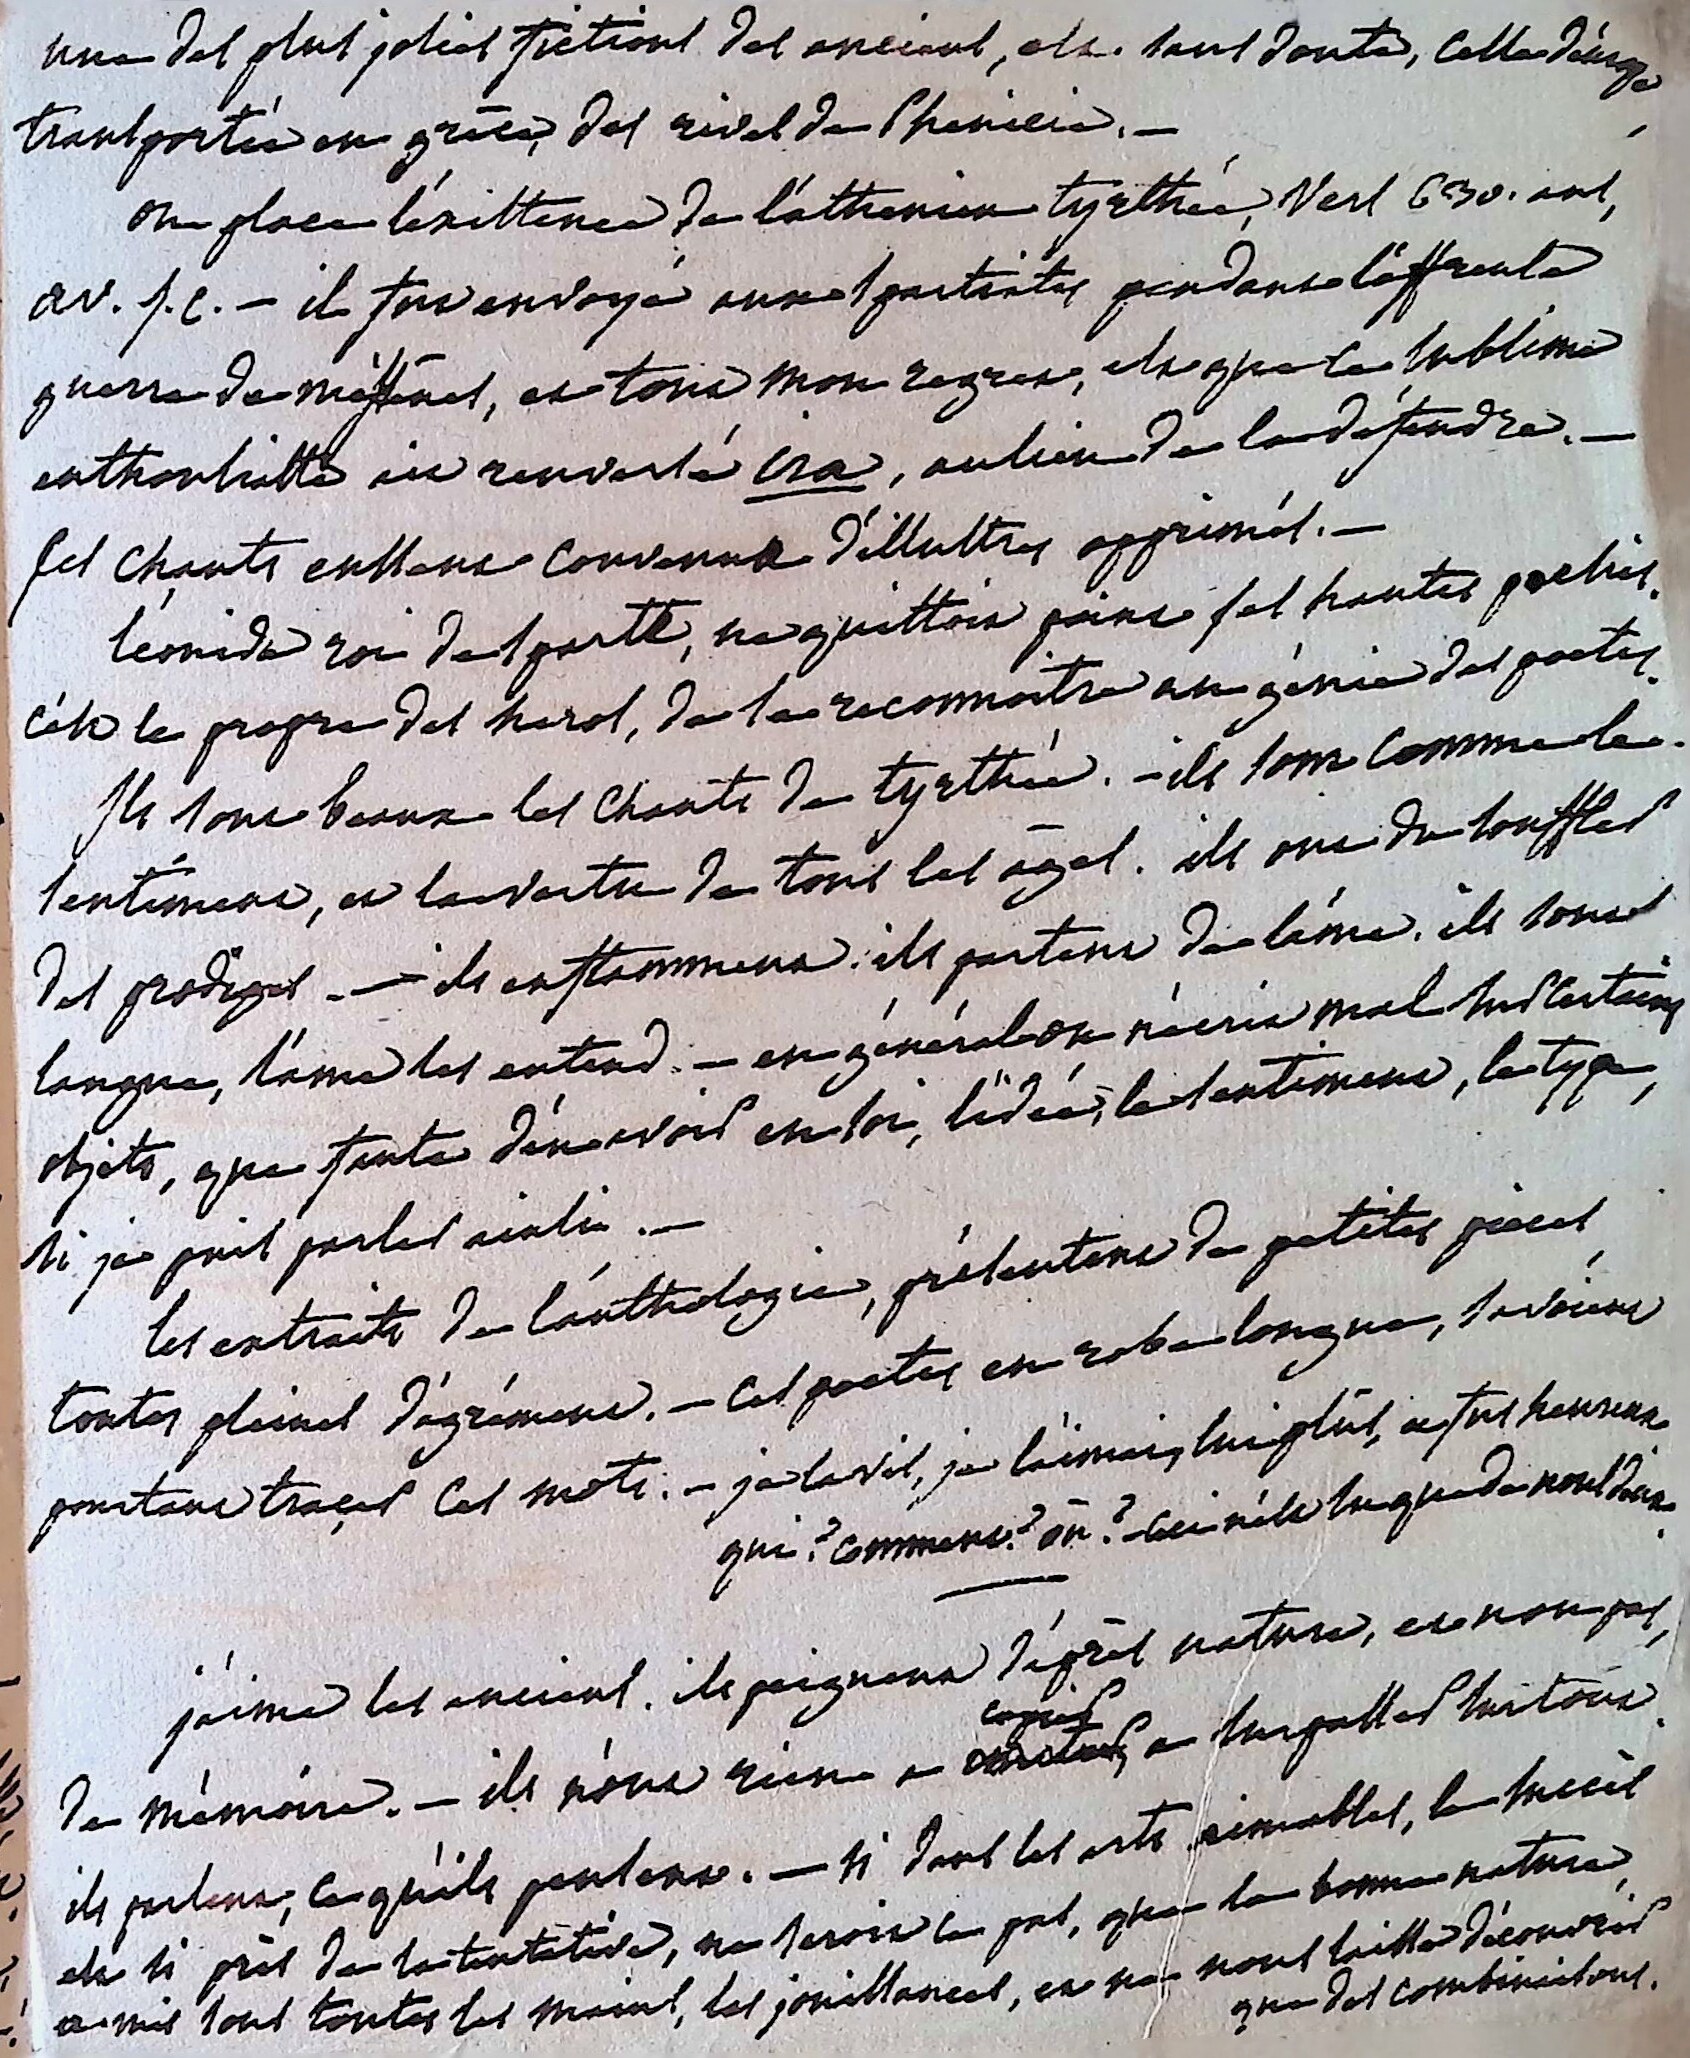 une des plus jolies fictions des anciens, est sans doute, celle d'europe
transportée en grèce, des rives de Phenicie. —
on place l'éxistence de l'athenien tyrthée, vers 630. ans,
av. j. c. — il fut envoyé aux spartiates pendant l'affreuse
guerre de méssènes, et tout mon regret, est que ce sublime
enthousiaste ait renversé ira, au lieu de la défendre. —
ses chants eussent convenus d'illustres opprimés. —
léonidas roi de sparte, ne quittoit point ses hautes poésies.
c'est le propre des heros, de se reconnoitre au génie des poetes.
Ils sont beaux les chants de tyrthée. — ils sont comme le
sentiment, et la vertu de tous les âges. ils ont du souffler
des prodiges. — ils enflamment. ils partent de l'áme. ils sont sa
langue, l'ame les entend. — en général on n'écrit mal sur certains
objets, que faute d'en avoir en soi, l'idée, le sentiment, le type,
si je puis parler ainsi. —
les extraits de l'anthologie, présentent de petites pieces
toutes pleines d'agrément. — ces poetes en robe longue, savoient
pourtant tracer ces mots. — je la vis, je l'aimai, lui plûs, et fus heureux
qui? comment? où? — ceci n'est su que de nous deux.
j'aime les anciens. ils peignent d'après nature, et non pas,
de mémoire. — ils n'ont rien a copier a surpasser surtout.
ils parlent, ce qu'ils pensent. — si dans les arts aimables, le succès
est si près de la tentative, ne seroit ce pas, que la bonne nature,
a mis sous toutes les mains, les jouissances, et ne nous laisse découvrir
que des combinaisons.